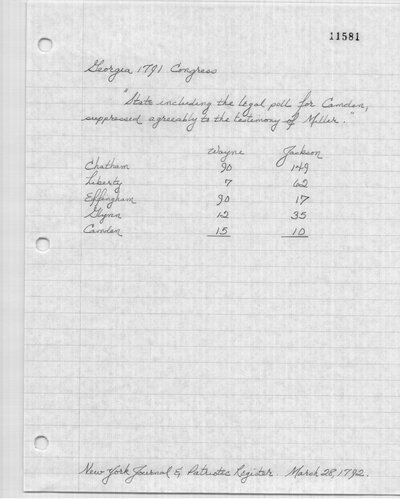 11581
Georgia 1791 Congress
"State including the legal poll for Camden,
suppressed agreeably to the testimony of Miller."
Wayne Jackson
Chatham 90 149
Liberty 7 62
Effingham 90 17
Glynn 12 35
Camden 15 10
New York Journal & Patriotic Register. March 28, 1792.